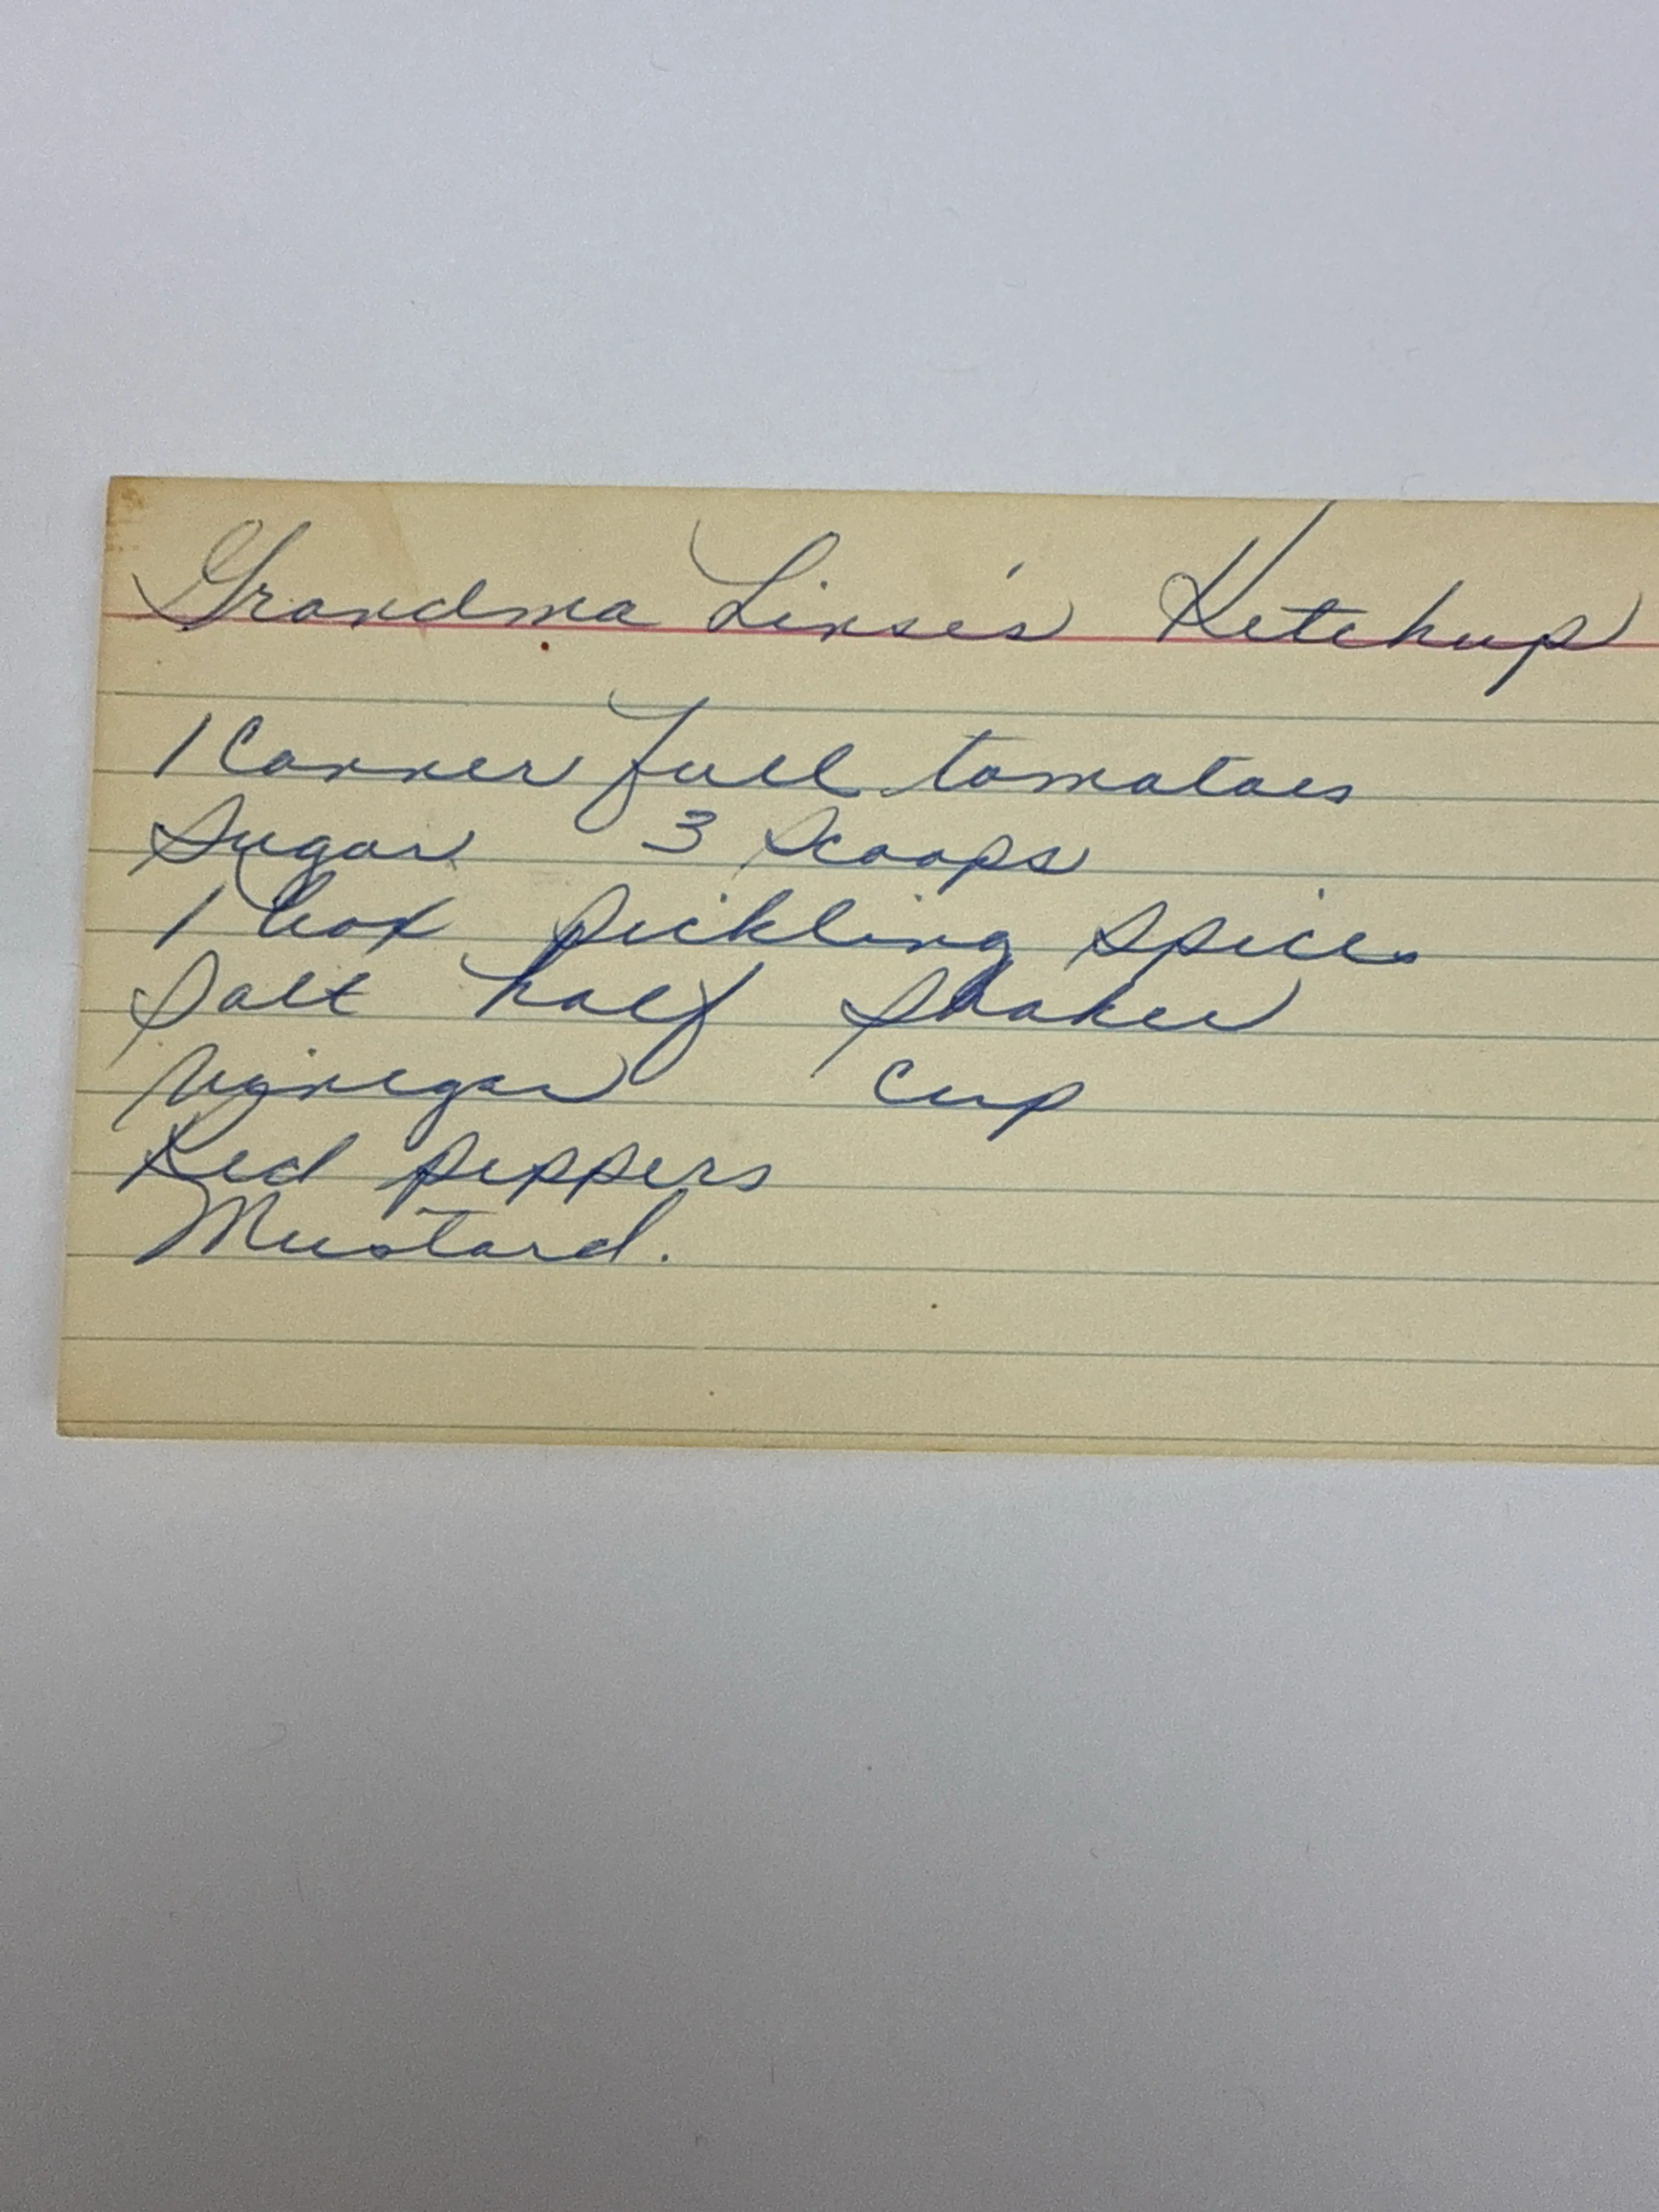 Grandma Linse's Ketchup
1 Canner full tomatoes
Sugar 3 Scoops
1 box pickling spice
Salt half shaker
Vinegar cup
Red peppers
Mustard.